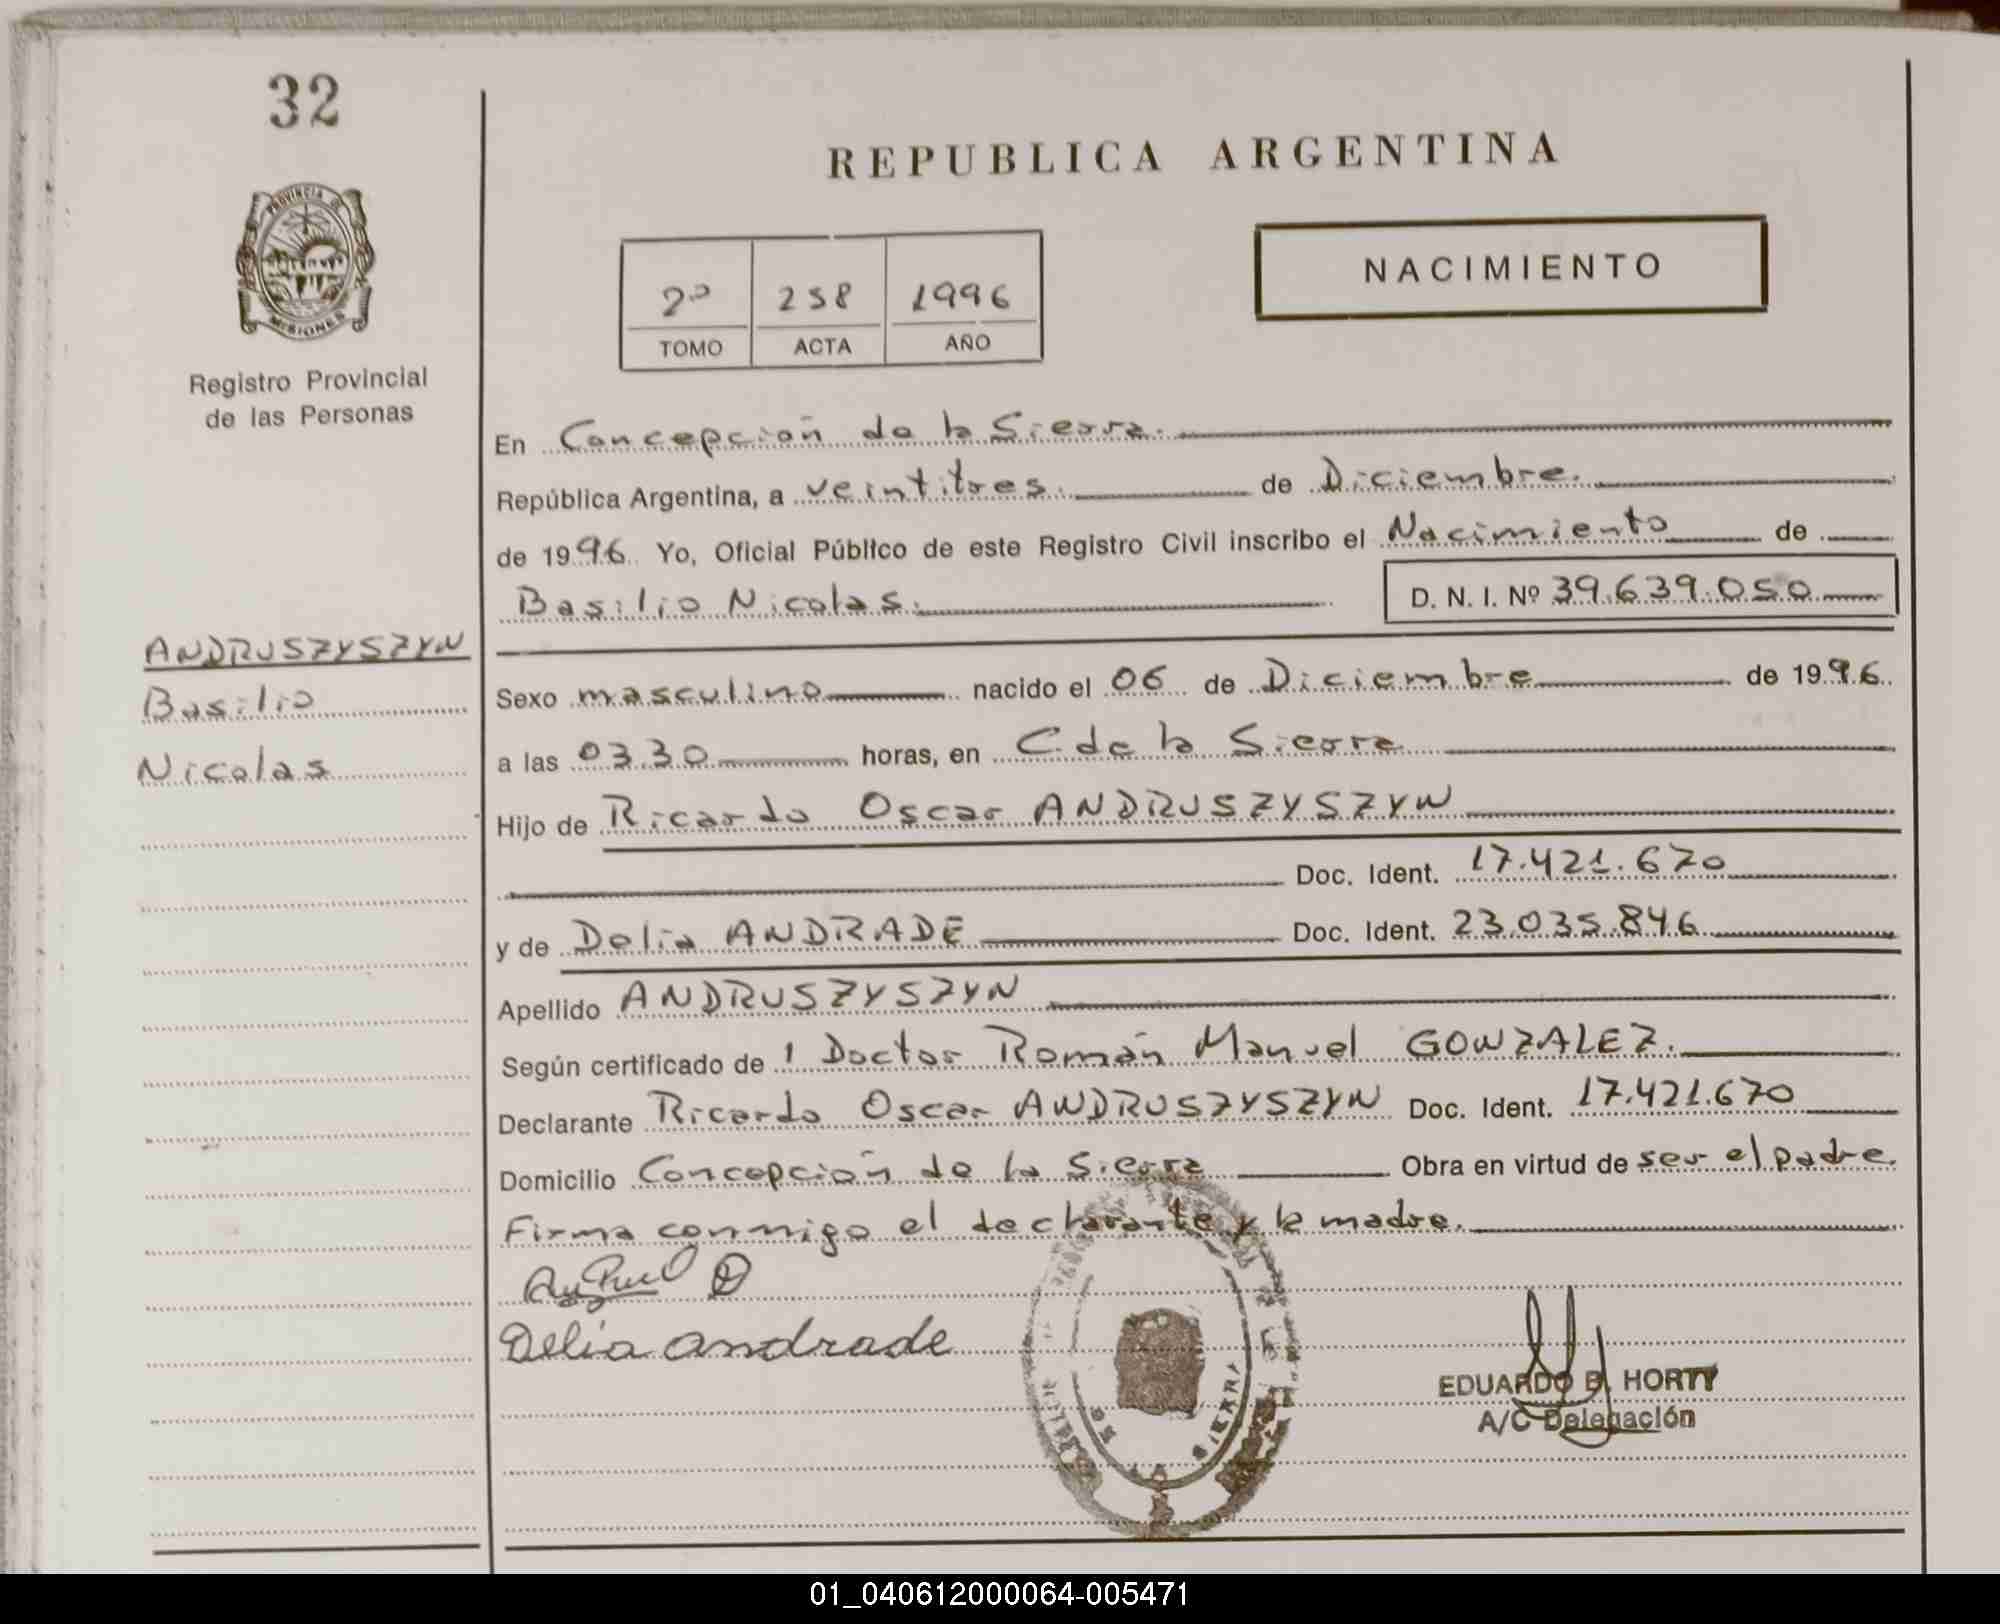 32
REPUBLICA ARGENTINA
PROVINCIA DE
MISIONES
Registro Provincial
de las Personas
2º 258 1996
TOMO ACTA AÑO
NACIMIENTO
En Concepción de la Sierra.
República Argentina, a veintitres. de Diciembre.
de 1996. Yo, Oficial Público de este Registro Civil inscribo el Nacimiento de
Basilio Nicolas. D. N. I. Nº 39.639.050
ANDRUSZYSZYN
Basilio
Nicolas
Sexo masculino nacido el 06 de Diciembre de 1996.
a las 03.30 horas, en C. de la Sierra
Hijo de Ricardo Oscar ANDRUSZYSZYN
Doc. Ident. 17.421.670
y de Delia ANDRADE Doc. Ident. 23.035.846
Apellido ANDRUSZYSZYN
Según certificado de l Doctor Román Manuel GONZALEZ.
Declarante Ricardo Oscar ANDRUSZYSZYN Doc. Ident. 17.421.670
Domicilio Concepción de la Sierra Obra en virtud de ser el padre.
Firma conmigo el declarante y la madre.
Delia andrade
SIERRA
EDUARDO B. HORTY
A/C Delegación
01_040612000064-005471